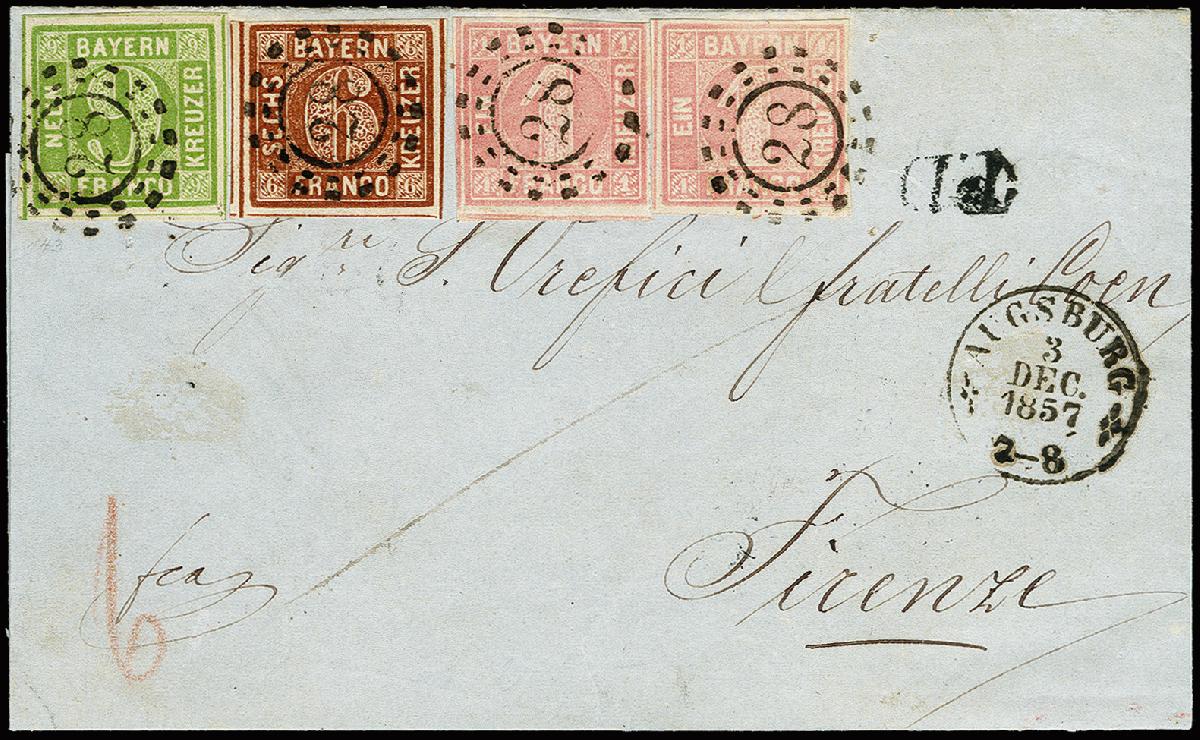 9 BAYERN 9
NEUN KREUZER
9 FRANCO 9
28
6 BAYERN 6
SECHS KREUZER
6 FRANCO 6
28
1 BAYERN 1
KREUZER
1 FRANCO 1
28
1 BAYERN 1
EIN KREUZER
1 FRANCO 1
28
P.D.
Sigri S. Orefici & fratelli Coen
AUGSBURG
3
DEC.
1857
7-8
Firenze
fco
6